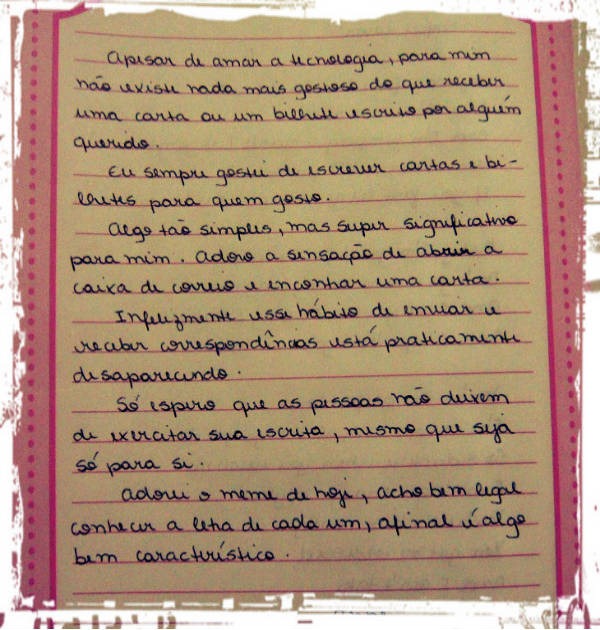 Apesar de amar a tecnologia, para mim
não existe nada mais gostoso do que receber
uma carta ou um bilhete escrito por alguém
querido.
Eu sempre gostei de escrever cartas e bi-
lhetes para quem gosto.
Algo tão simples, mas super significativo
para mim. Adoro a sensação de abrir a
caixa de correio e encontrar uma carta.
Infelizmente esse hábito de enviar e
receber correspondências está praticamente
desaparecendo.
Só espero que as pessoas não deixem
de exercitar sua escrita, mesmo que seja
só para si.
Adorei o meme de hoje, acho bem legal
conhecer a letra de cada um, afinal é algo
bem característico.